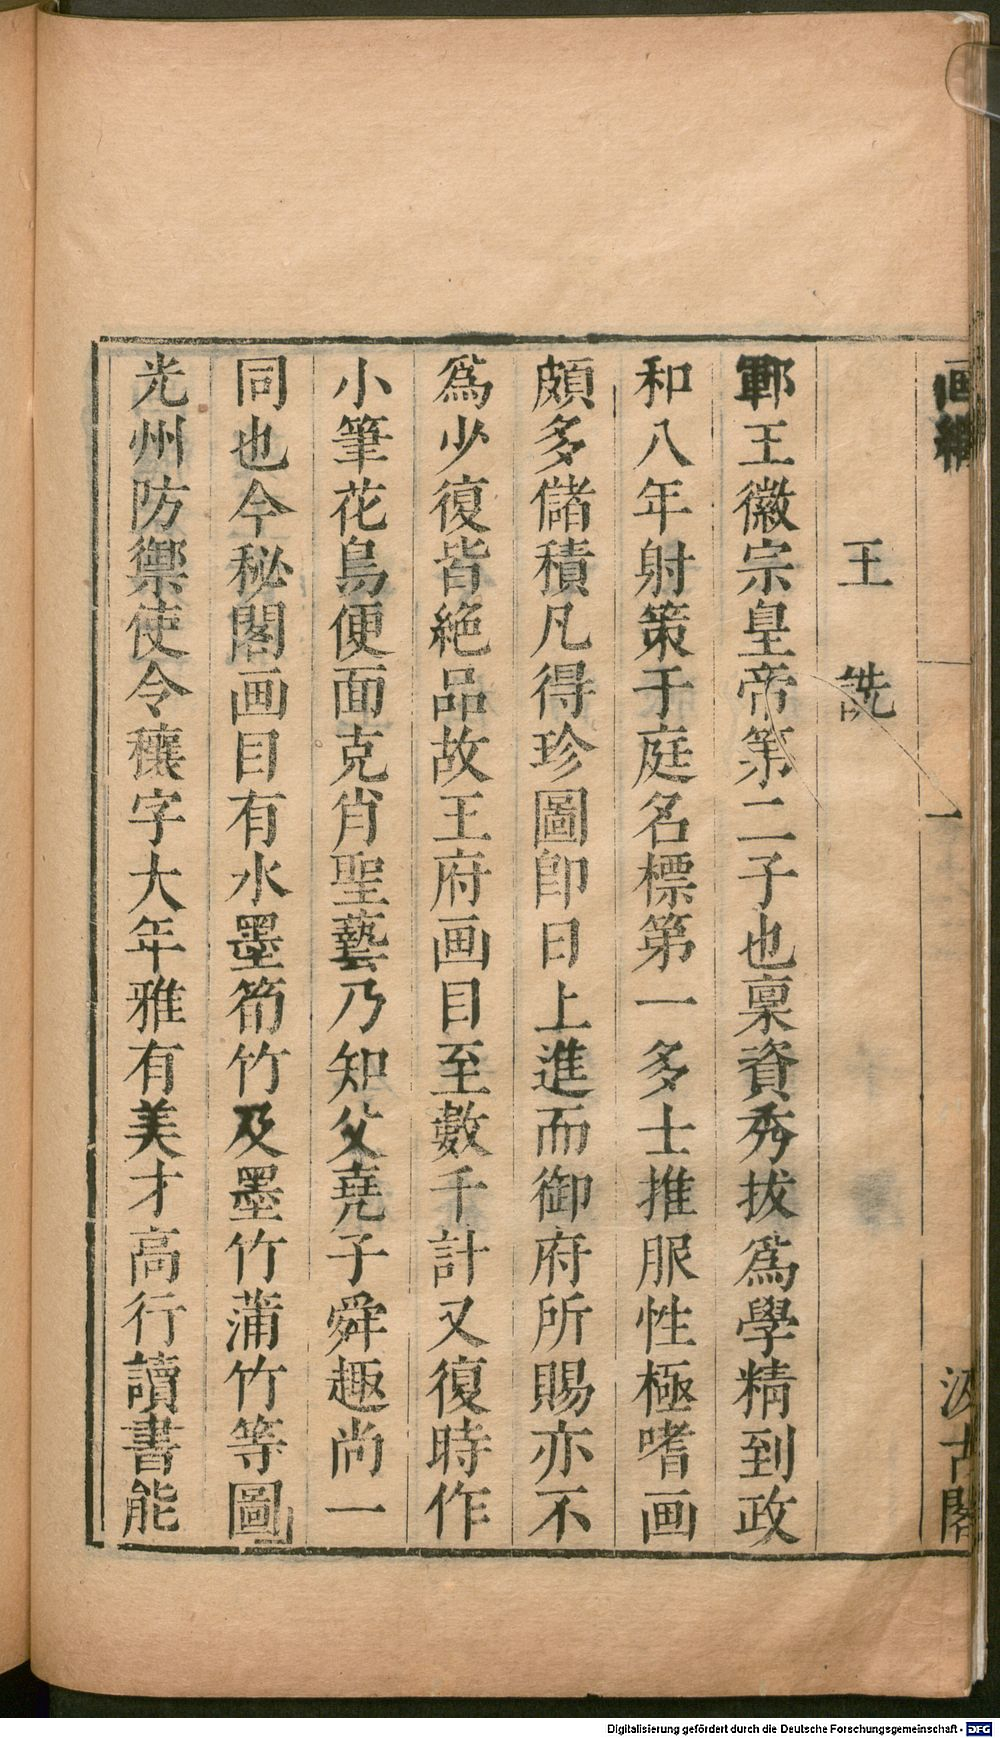 画繼
一
汲古閣
王詵
鄆王徽宗皇帝第二子也稟資秀拔爲學精到政
和八年射策于庭名標第一多士推服性極嗜画
頗多儲積凡得珍圖卽日上進而御府所賜亦不
爲少復皆絶品故王府画目至數千計又復時作
小筆花鳥便面克肖聖藝乃知父堯子舜趣尚一
同也今秘閣画目有水墨筍竹及墨竹蒲竹等圖
光州防禦使令穰字大年雅有美才高行讀書能
Digitalisierung gefördert durch die Deutsche Forschungsgemeinschaft - DFG